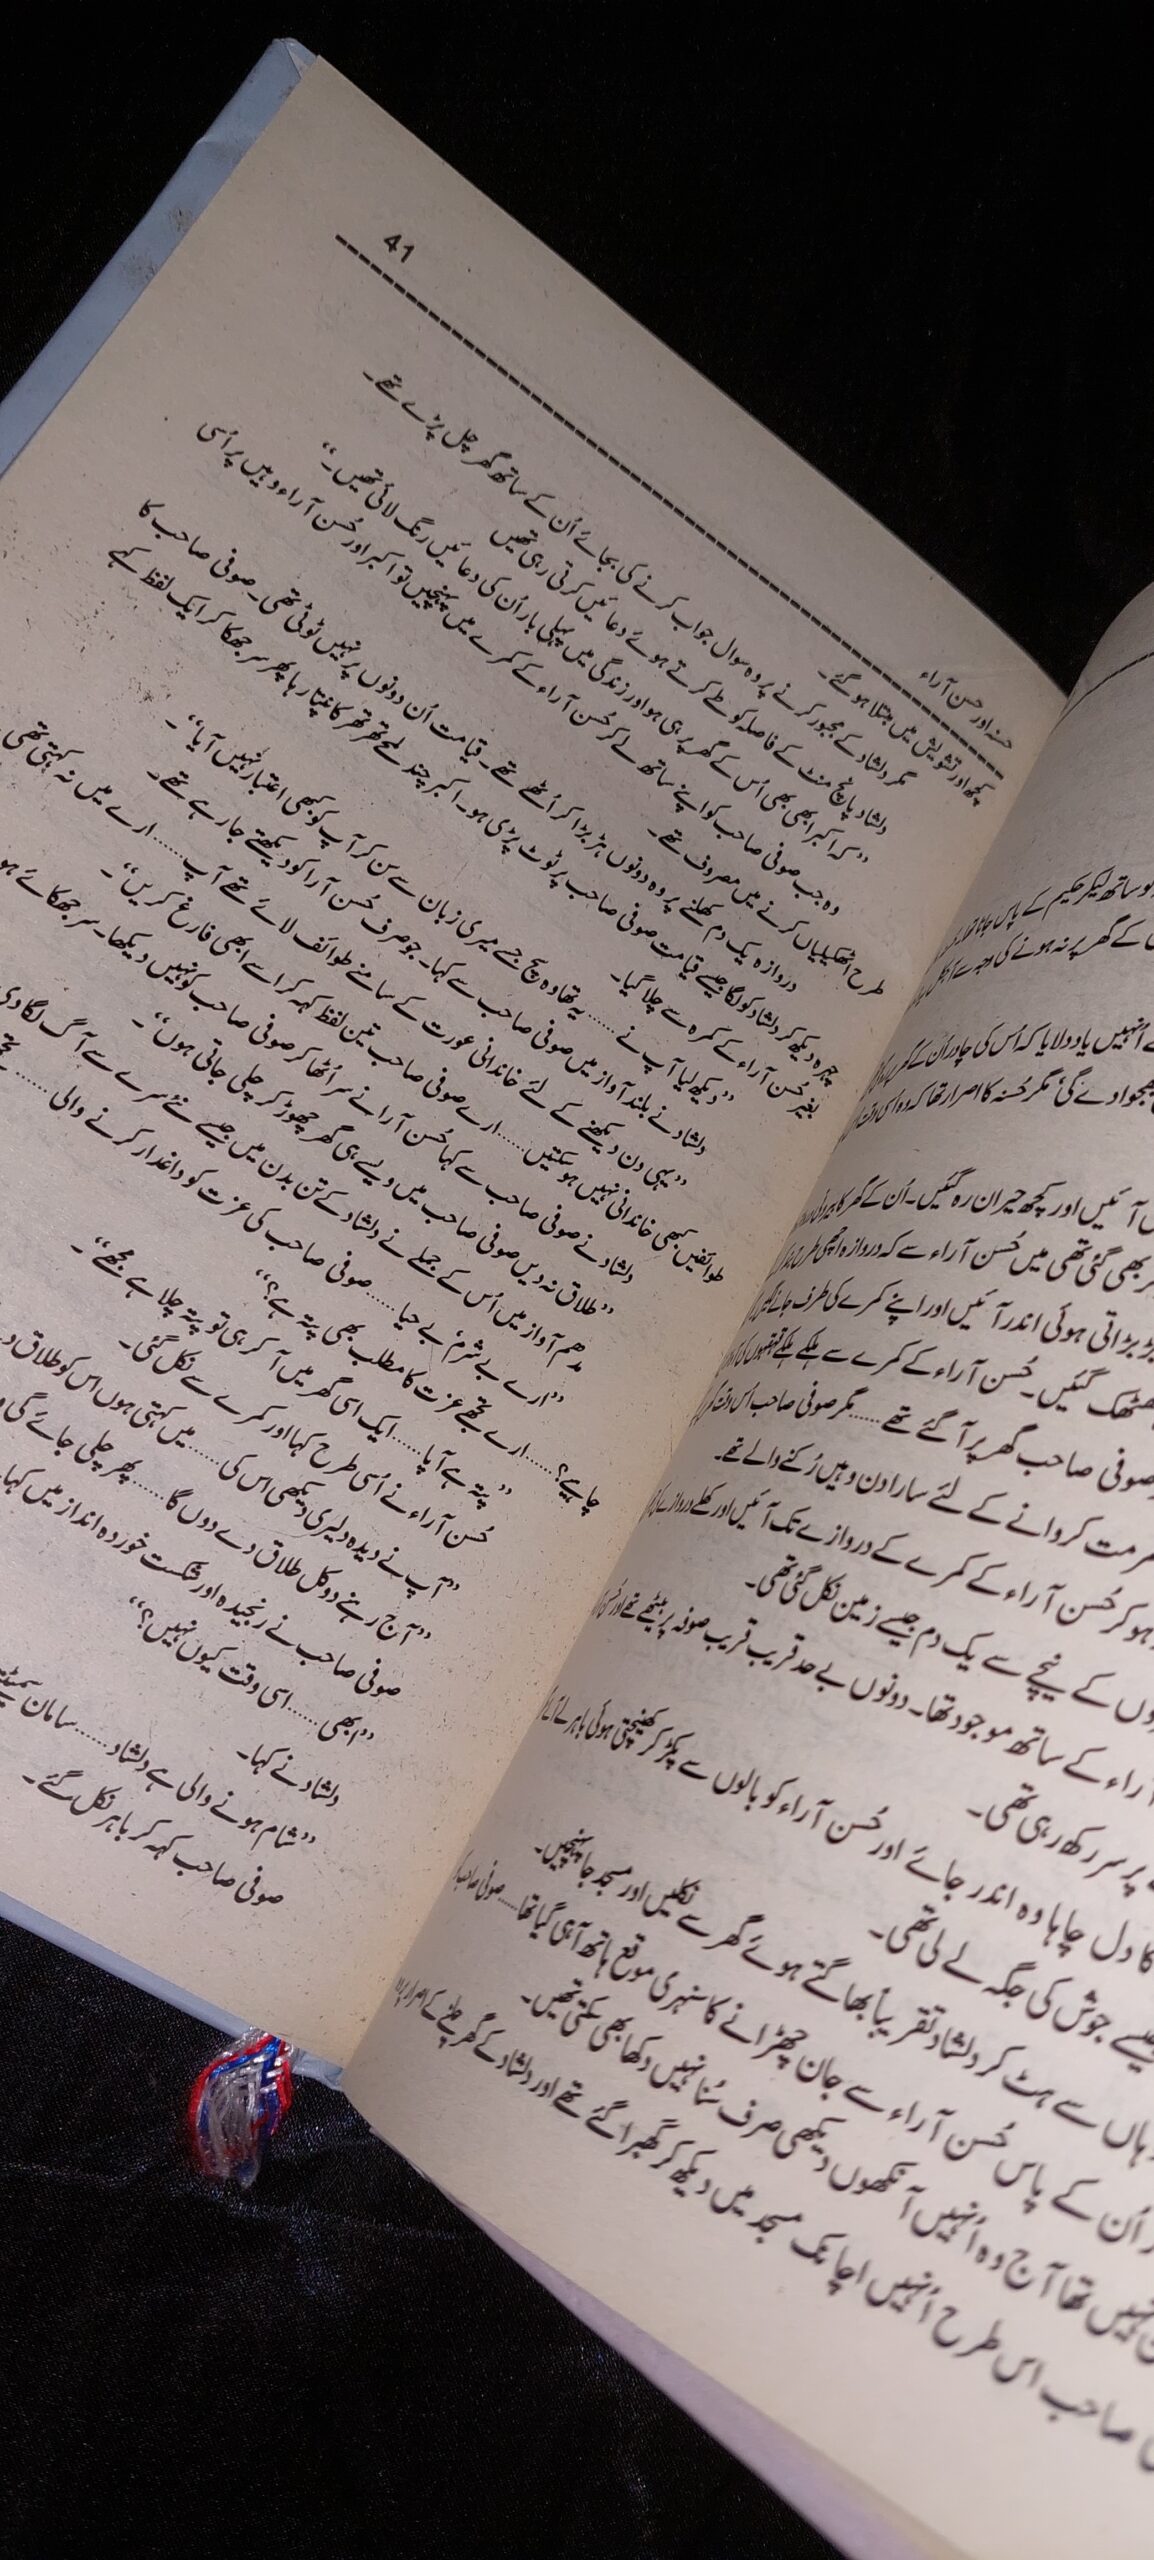 41
حسنہ اور حسن آراء
کچھ اور تشویش میں مبتلا ہو گئے۔
مگر دلشاد کے مجبور کرنے پر وہ سوال جواب کرنے کی بجائے اُن کے ساتھ گھر چل پڑے تھے۔
دلشاد پانچ منٹ کے فاصلہ کو طے کرتے ہوئے دعائیں کرتی رہی تھیں
”کہ اکبر ابھی بھی اُس کے گھر پر ہی ہو اور زندگی میں پہلی بار اُن کی دعائیں رنگ لائی تھیں۔“
وہ جب صوفی صاحب کو اپنے ساتھ لے کر حُسن آراء کے کمرے میں پہنچیں تو اکبر اور حُسن آراء وہیں پر اُسی
طرح اٹھکیلیاں کرنے میں مصروف تھے۔
دروازہ یک دم کھلنے پر وہ دونوں ہڑبڑا کر اُٹھے تھے۔ قیامت اُن دونوں پر نہیں ٹوٹی تھی۔ صوفی صاحب کا
چہرہ دیکھ کر دلشاد کو لگا جیسے قیامت صوفی صاحب پر ٹوٹ پڑی ہو۔ اکبر چند لمحے تھر تھر کانپتا رہا پھر سر جھکا کر ایک لفظ کہے
بغیر حُسن آراء کے کمرہ سے چلا گیا۔
”دیکھ لیا آپ نے...... یہ تھا وہ سچ جسے میری زبان سے سن کر آپ کو کبھی اعتبار نہیں آیا“۔
دلشاد نے بلند آواز میں صوفی صاحب سے کہا۔ جو صرف حُسن آرا کو دیکھتے جا رہے تھے۔
”یہی دن دیکھنے کے لئے خاندانی عورت کے سامنے طوائف لائے تھے آپ...... ارے میں نہ کہتی تھی
طوائفیں کبھی خاندانی نہیں ہو سکتیں...... ارے صوفی صاحب تین لفظ کہہ کر اسے ابھی فارغ کریں“۔
دلشاد نے صوفی صاحب سے کہا حُسن آرا نے سر اُٹھا کر صوفی صاحب کو نہیں دیکھا۔ سر جھکائے ہو
”طلاق نہ دیں صوفی صاحب میں ویسے ہی گھر چھوڑ کر چلی جاتی ہوں“۔
مدھم آواز میں اُس کے جملے نے دلشاد کے تن بدن میں جیسے نئے سرے سے آگ لگا دی
”ارے بے شرم، بے حیا...... صوفی صاحب کی عزت کو داغدار کرنے والی......
چاہیے؟...... ارے تجھے عزت کا مطلب بھی پتہ ہے؟“
”پتہ ہے آپا...... ایک اسی گھر میں آ کر ہی تو پتہ چلا ہے مجھے“۔
حُسن آراء نے اُسی طرح کہا اور کمرے سے نکل گئی۔
”آپ نے دیدہ دلیری دیکھی اس کی...... میں کہتی ہوں اس کو طلاق د
”آج رہنے دو کل طلاق دے دوں گا...... پھر چلی جائے گی
صوفی صاحب نے رنجیدہ اور شکست خوردہ انداز میں کہا۔
”ابھی...... اسی وقت کیوں نہیں؟“
دلشاد نے کہا۔
”شام ہونے والی ہے دلشاد...... سامان سمیٹتے
صوفی صاحب کہہ کر باہر نکل گئے۔
و ساتھ لیکر حکیم کے پاس جانا تھا
کے گھر پر نہ ہونے کی وجہ سے
انہیں یاد دلایا کہ اُس کی چادر اُن کے گھر
بھجوا دے گی مگر حُسنہ کا اصرار تھا کہ وہ اسی وقت
آئیں اور کچھ حیران رہ گئیں۔ اُن کے گھر کا بیرونی
بھی گئی تھی میں حُسن آراء سے کہ دروازہ اچھی طرح
بڑبڑاتی ہوئی اندر آئیں اور اپنے کمرے کی طرف جانے
ٹھٹھک گئیں۔ حُسن آراء کے کمرے سے ہلکے ہلکے قہقہوں کی
صوفی صاحب گھر پر آ گئے تھے...... مگر صوفی صاحب اُس وقت
مرمت کروانے کے لئے سارا دن وہیں رُکنے والے تھے۔
ہو کر حُسن آراء کے کمرے کے دروازے تک آئیں اور کھلے دروازے
وں کے نیچے سے یک دم جیسے زمین نکل گئی تھی۔
آراء کے ساتھ موجود تھا۔ دونوں بے حد قریب قریب صوفہ پر بیٹھے تھے اور حُسن
پر سر رکھ رہی تھی۔
کا دل چاہا وہ اندر جائے اور حُسن آراء کو بالوں سے پکڑ کر کھینچتی ہوئی باہر لے آئے
جوش کی جگہ لے لی تھی۔
وہاں سے ہٹ کر دلشاد تقریباً بھاگتے ہوئے گھر سے نکلیں اور مسجد جا پہنچیں۔
اُن کے پاس حُسن آراء سے جان چھڑانے کا سنہری موقع ہاتھ آ ہی گیا تھا...... صوفی صاحب
نہیں تھا آج وہ اُنہیں آنکھوں دیکھی صرف سُنا نہیں دکھا بھی سکتی تھیں۔
صاحب اس طرح اُنہیں اچانک مسجد میں دیکھ کر گھبرا گئے تھے اور دلشاد کے گھر چلنے کے اصرار پر وہ